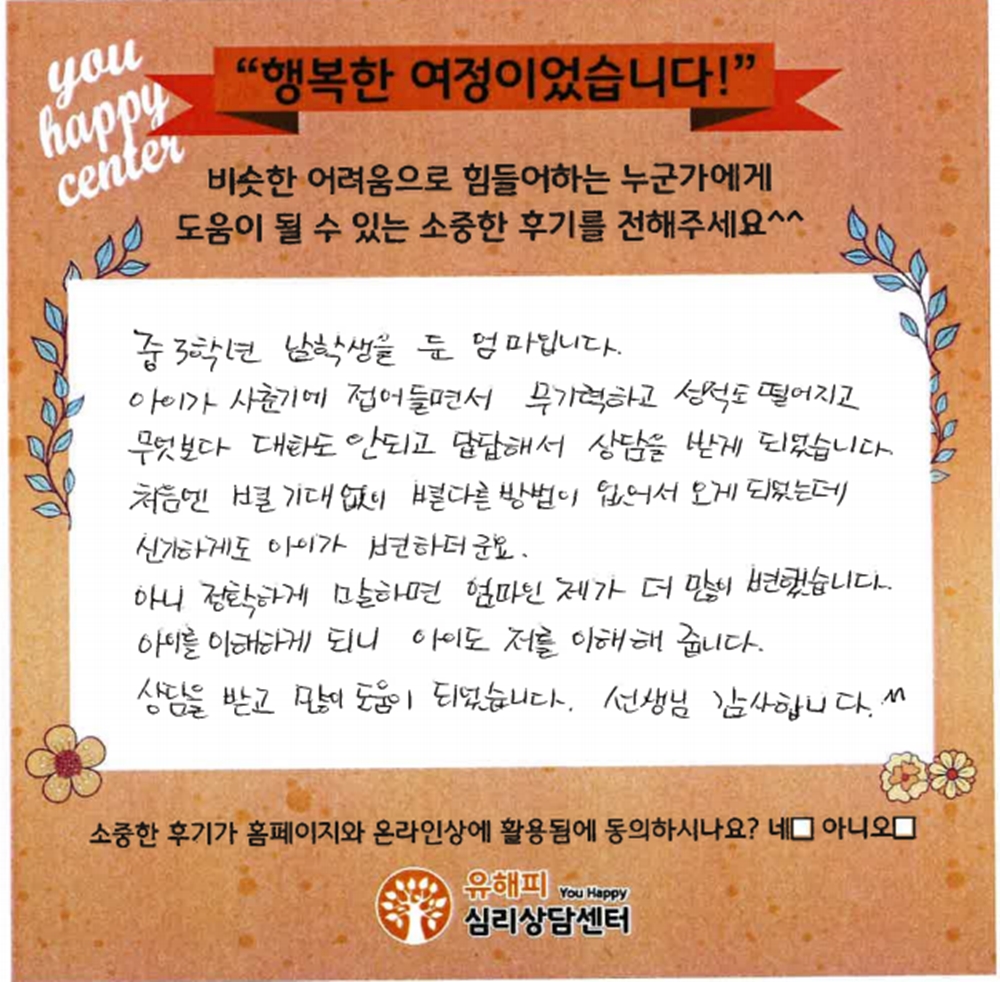 you
happy
center
“행복한 여정이었습니다!”
비슷한 어려움으로 힘들어하는 누군가에게
도움이 될 수 있는 소중한 후기를 전해주세요^^
중3학년 남학생을 둔 엄마입니다.
아이가 사춘기에 접어들면서 무기력하고 성적도 떨어지고
무엇보다 대화도 안되고 답답해서 상담을 받게 되었습니다.
처음엔 별 기대 없이 별다른 방법이 없어서 오게 되었는데
신기하게도 아이가 변하더군요.
아니 정확하게 말하면 엄마인 제가 더 많이 변했습니다.
아이를 이해하게 되니 아이도 저를 이해해 줍니다.
상담을 받고 많이 도움이 되었습니다. 선생님 감사합니다.^^
소중한 후기가 홈페이지와 온라인상에 활용됨에 동의하시나요? 네□ 아니오□
유해피 You Happy
심리상담센터